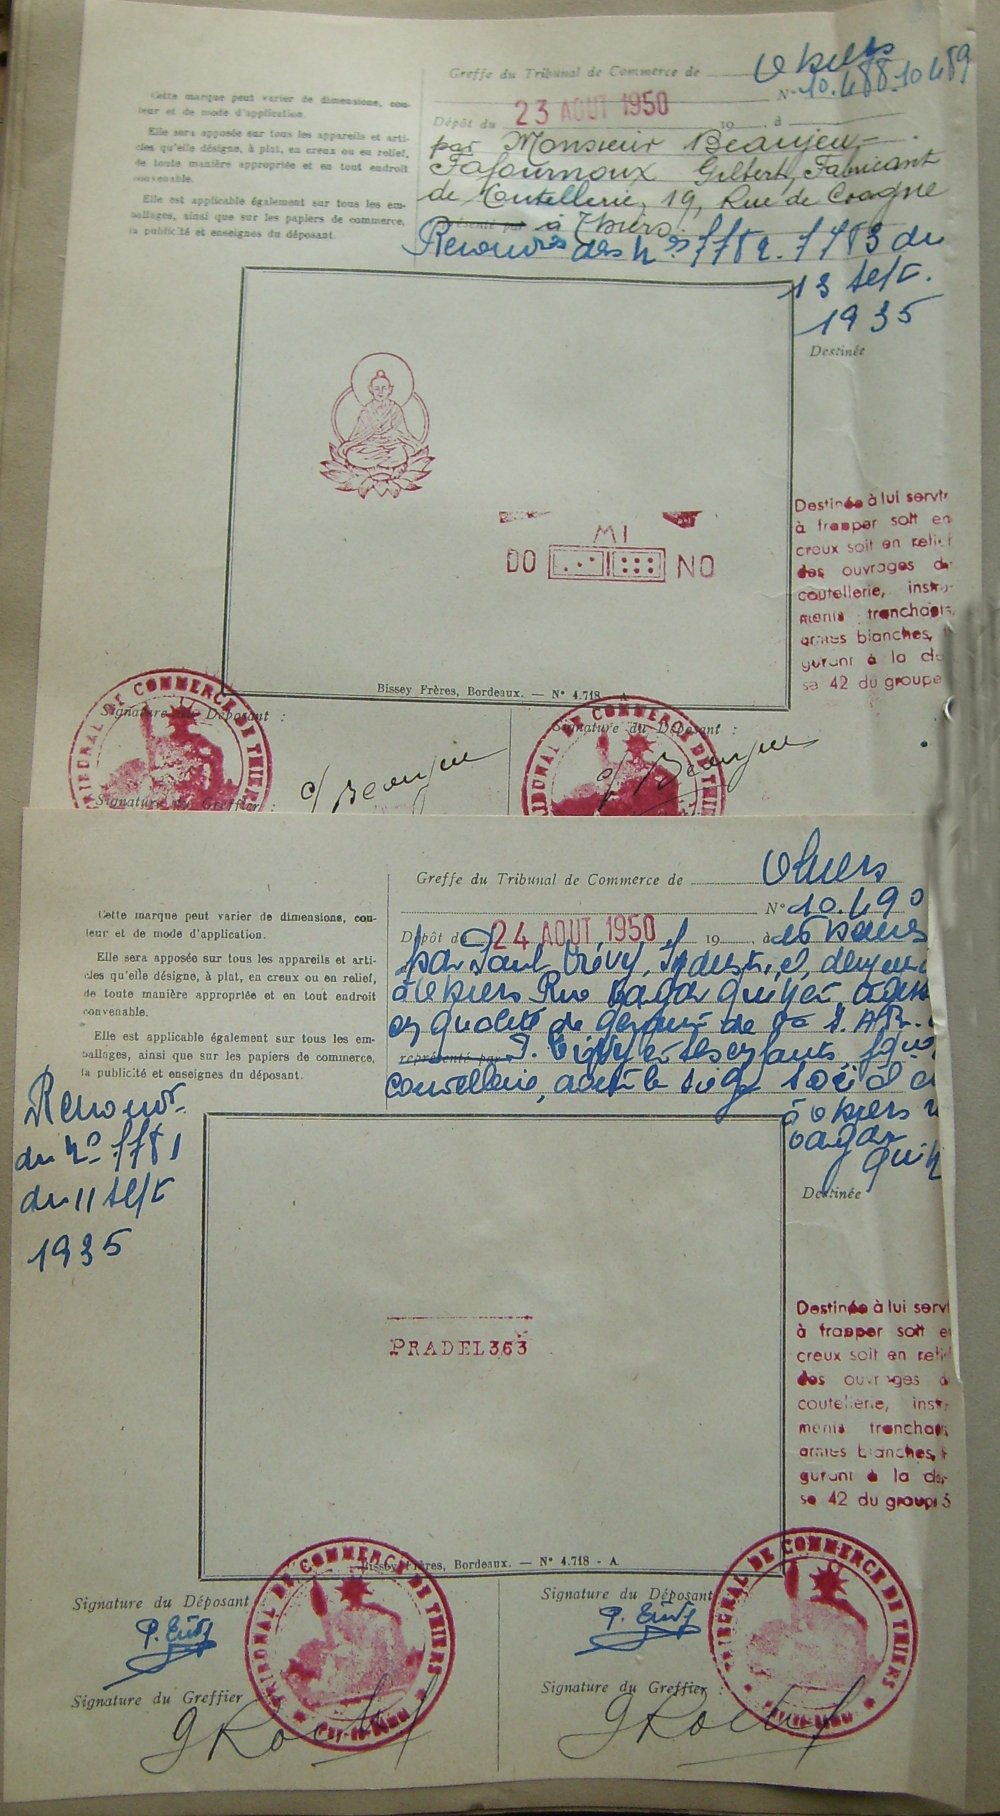 Greffe du Tribunal de Commerce de Thiers
N° 10.488.10.489
Dépôt du 23 AOUT 1950 19 à
par Monsieur Beaujeu-
Fafournoux Gilbert, Fabricant
de Coutellerie, 19, Rue de Cizogne
à Thiers.
Renouv des Nos
13 sept.
1935
Cette marque peut varier de dimensions, cou-
leur et de mode d'application.
Elle sera apposée sur tous les appareils et arti-
cles qu'elle désigne, à plat, en creux ou en relief,
de toute manière appropriée et en tout endroit
convenable.
Elle est applicable également sur tous les em-
ballages, ainsi que sur les papiers de commerce,
la publicité et enseignes du déposant.
Destinée
MI
DO NO
Destinée à lui servir
à frapper soit en
creux soit en relief
des ouvrages de
coutellerie, instru-
ments tranchants,
armes blanches, fi
gurant à la clas
se 42 du groupe
Bissey Frères, Bordeaux. — N° 4.718 - A
Signature du Déposant :
Signature du Déposant :
c/ Beaujeu
c/ Beaujeu
Signature du Greffier :
TRIBUNAL DE COMMERCE DE THIERS
TRIBUNAL DE COMMERCE DE THIERS
Greffe du Tribunal de Commerce de Thiers
N° 10.490
Dépôt du 24 AOUT 1950 19 à 16 heures
par Paul
à Thiers Rue
en qualité de gérant de la S.A.R.
représenté par
coutellerie, siège social
à Thiers
Cette marque peut varier de dimensions, cou-
leur et de mode d'application.
Elle sera apposée sur tous les appareils et arti-
cles qu'elle désigne, à plat, en creux ou en relief,
de toute manière appropriée et en tout endroit
convenable.
Elle est applicable également sur tous les em-
ballages, ainsi que sur les papiers de commerce,
la publicité et enseignes du déposant.
Renouv.
du No
du 11 sept
1935
Destinée
PRADEL 363
Destinée à lui servi
à frapper soit e
creux soit en reli
des ouvrages d
coutellerie, instr
ments tranchan
armes blanches, fi
gurant à la clas-
se 42 du groupe 5
Bissey Frères, Bordeaux. — N° 4.718 - A
Signature du Déposant
Signature du Déposant
Signature du Greffier
Signature du Greffier :
TRIBUNAL DE COMMERCE DE THIERS
TRIBUNAL DE COMMERCE DE THIERS